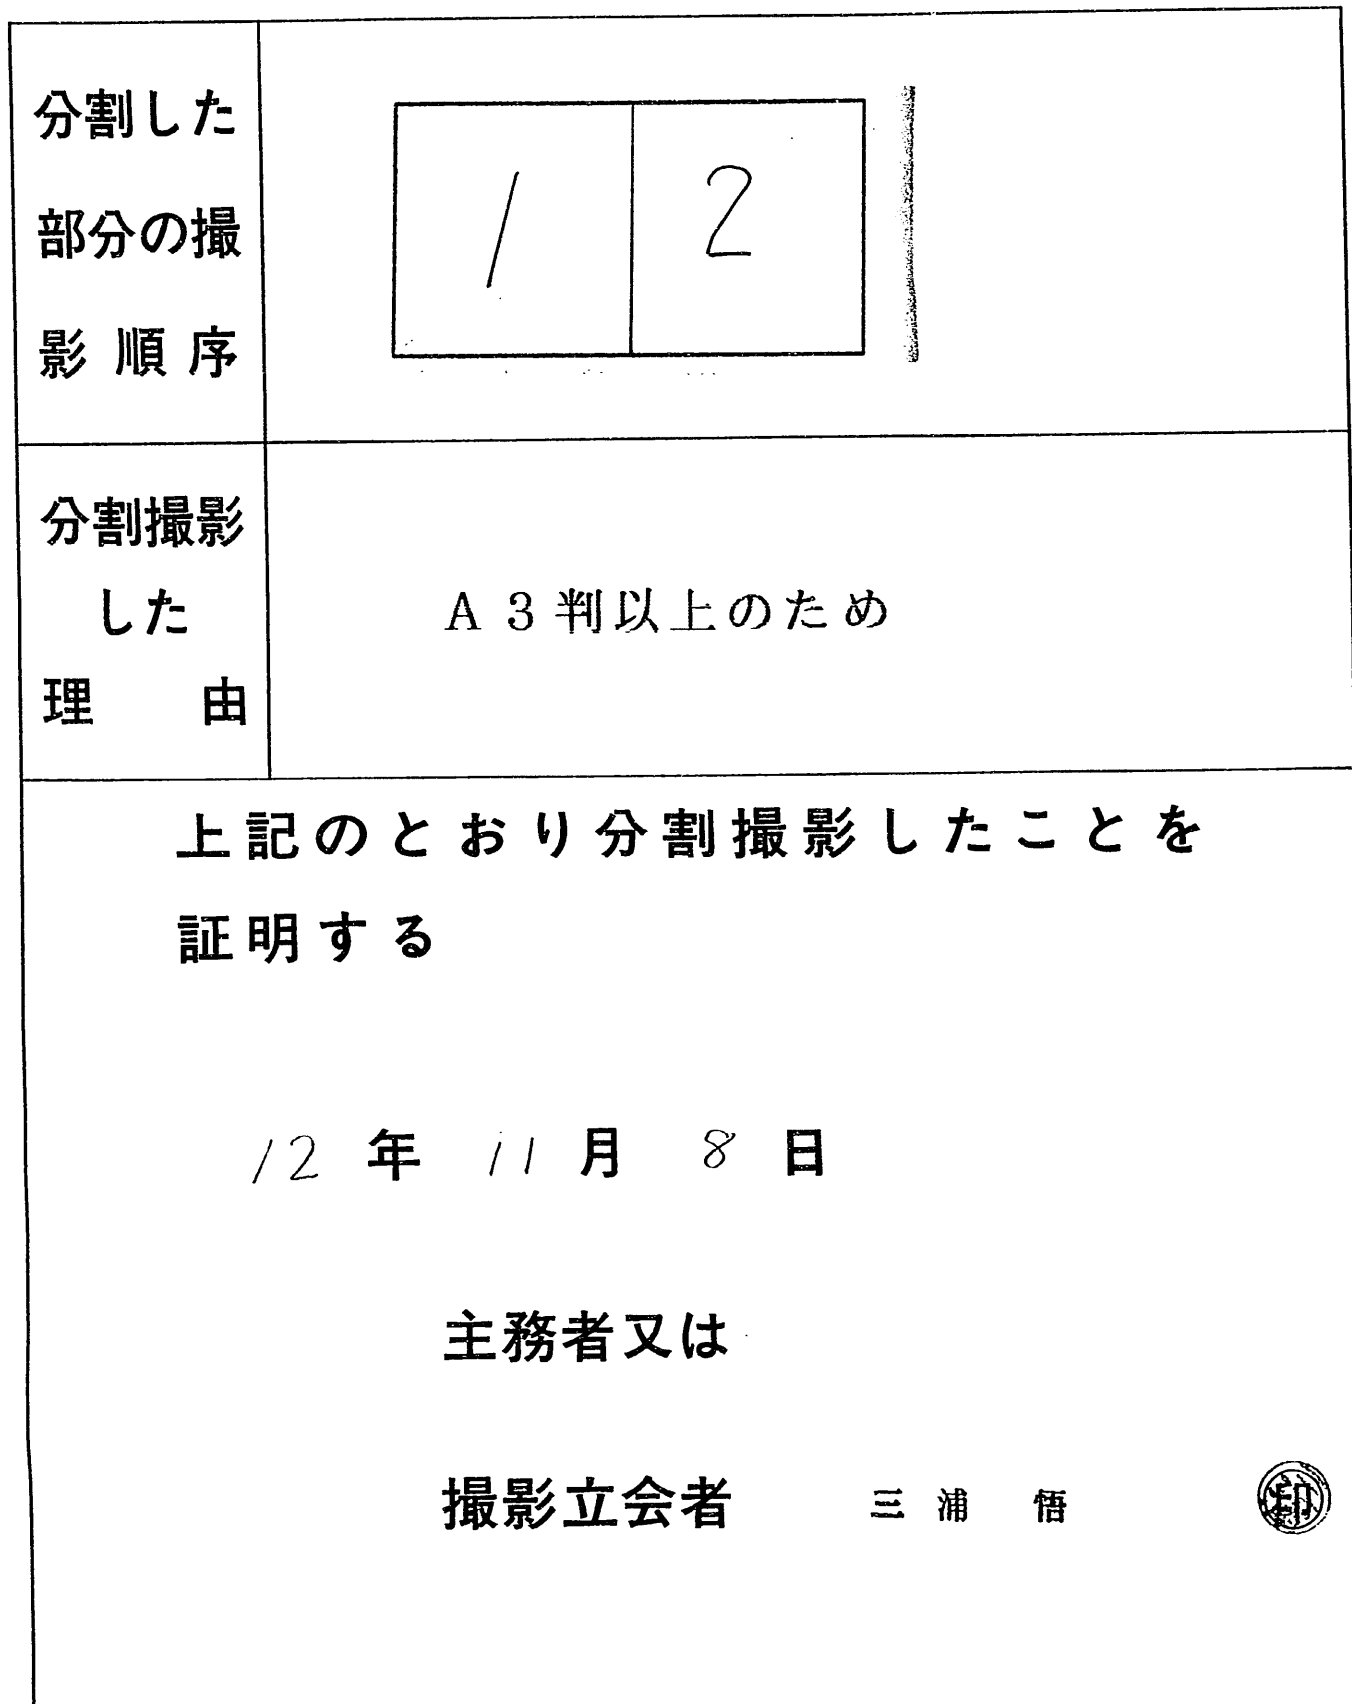 分割した
部分の撮
影順序
1 2
分割撮影
した
理 由
A3判以上のため
上記のとおり分割撮影したことを
証明する
12年 11月 8日
主務者又は
撮影立会者 三浦 悟 印